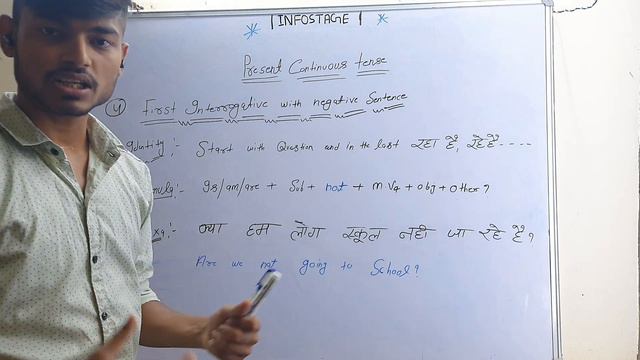 * | INFOSTAGE | *
Present Continuous tense
4 First Interrogative with negative Sentence
Identity :- Start with Question and in the last रहा है, रहे हैं ----
mula :- Is/am/are + Sub + not + m V4 + obj + other?
Exq :- क्या हम लोग स्कूल नही जा रहे है ?
Are we not going to School?